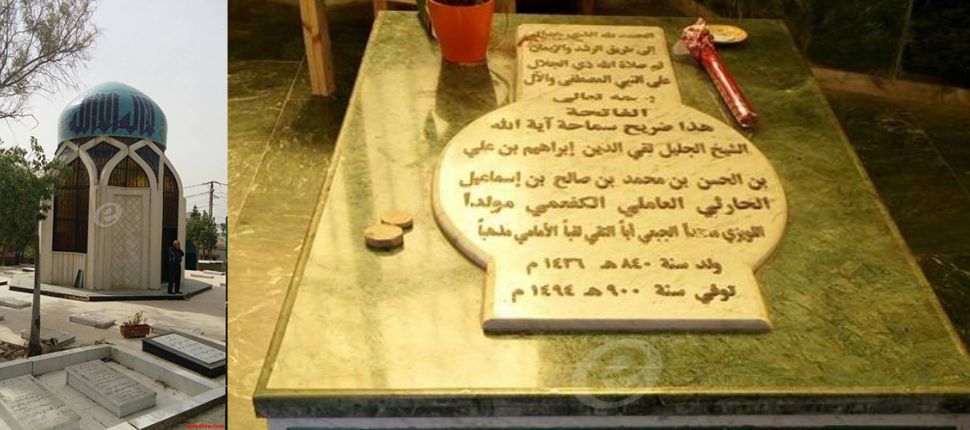 الحمد لله الذي
إلى طريق الرشد والإيمان
ثم صلاة الله ذي الجلال
على النبي المصطفى والآل
بسمه تعالى
الفاتحة
هذا ضريح سماحة آية الله
الشيخ الجليل تقي الدين إبراهيم بن علي
بن الحسن بن محمد بن صالح بن إسماعيل
الحارثي العاملي الكفعمي مولداً
اللويزي الجبعي أباً التقي لقباً الأمامي مذهباً
ولد سنة ٨٤٠ هـ ١٤٣٦ م
توفي سنة ٩٠٠ هـ ١٤٩٤ م
e